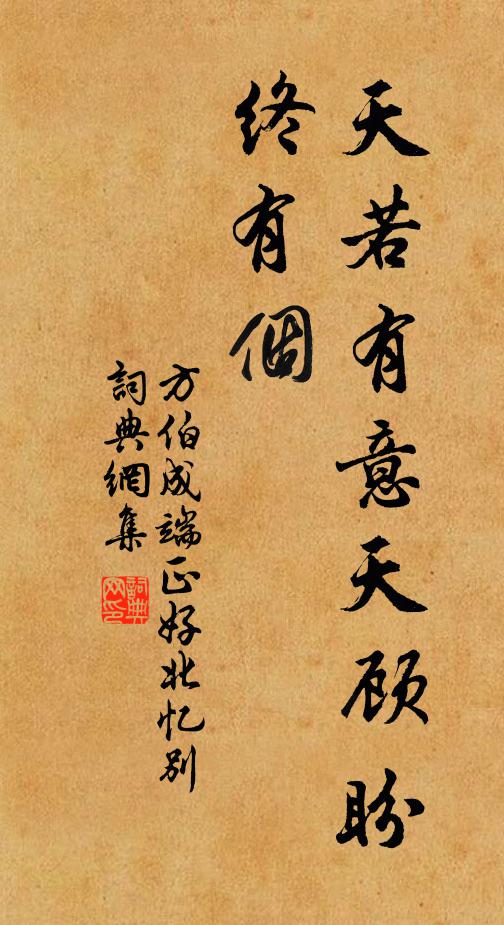 天若有意天顾盼
終有個
方伯成端正好北忆別
詞典網集
詞典网印